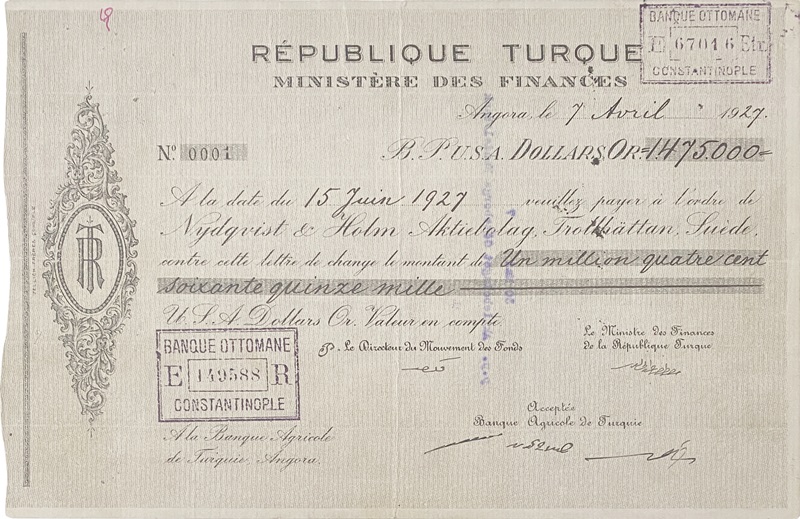 BANQUE OTTOMANE
E 67016 Etr.
CONSTANTINOPLE
RÉPUBLIQUE TURQUE
MINISTÈRE DES FINANCES
Angora, le 7 Avril 1927.
Nº 0001
B. P. U.S.A. DOLLARS OR=1.475.000=
A la date du 15 Juin 1927 veuillez payer à l'ordre de
Nydqvist & Holm Aktiebolag, Trollhättan, Suède,
contre cette lettre de change le montant de Un million quatre cent
soixante quinze mille
U.S.A. Dollars Or. Valeur en compte
BANQUE OTTOMANE
E 149588 R
CONSTANTINOPLE
Le Directeur du Mouvement des Fonds
Le Ministre des Finances
de la République Turque
Acceptés
Banque Agricole de Turquie
A la Banque Agricole
de Turquie, Angora.
TR